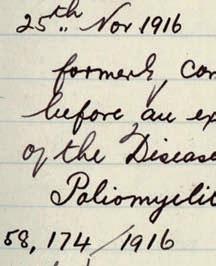 25th Nov 1916
formerly, con
before an ex
of the Disease
Poliomyelit
58, 174/1916